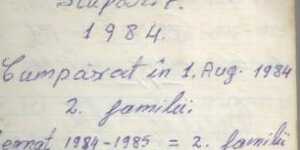 Stupărit.
1984.
Cumpărat în 1. Aug. 1984
2. familii.
Iernat 1984-1985 = 2. familii